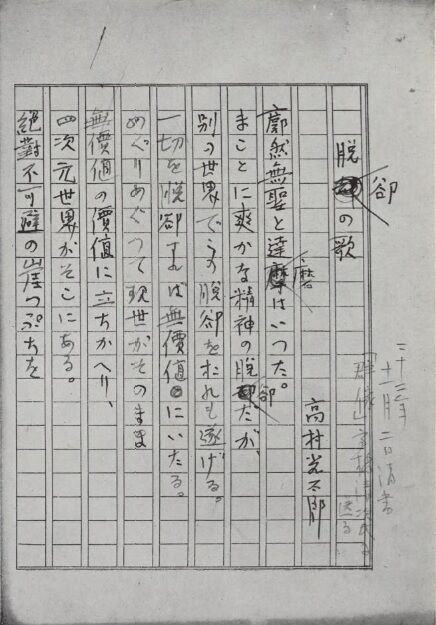 十一月二日清書
「群像」高橋清次氏に送る
脱却の歌
高村光太郎
廓然無聖と達磨はいつた。
まことに爽かな精神の脱却だが、
別の世界でこの脱却をおれも遂げる。
一切を脱却すれば無價値にいたる。
めぐりめぐつて現世がそのまま
無價値の價値に立ちかへり、
四次元世界がそこにある。
絶對不可避の崖つぷちを